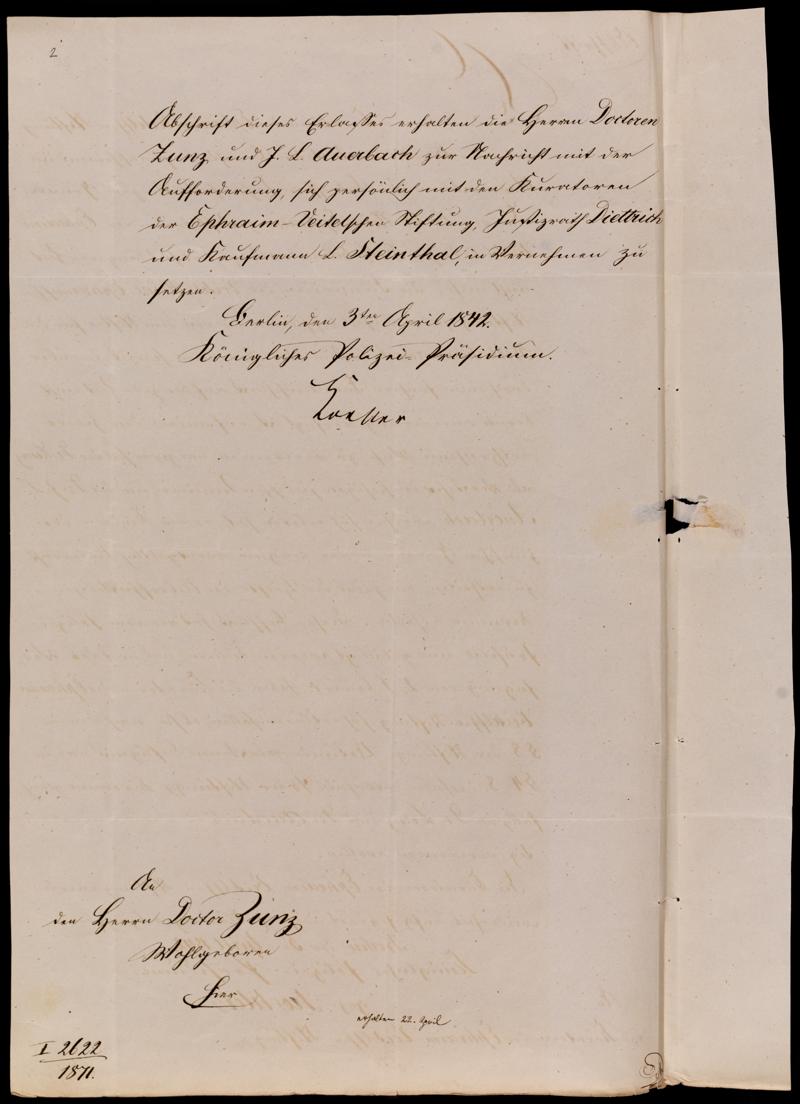 2
Abschrift dieses Erlasses erhalten die Herren Doctoren
Zunz und J. L. Auerbach zur Nachricht mit der
Aufforderung, sich persönlich mit den Kuratoren
der Ephraim-Veitelschen Stiftung, Justizrath Diettrich
und Kaufmann L. Steinthal, in Vernehmen zu
setzen.
Berlin, den 3ten April 1842.
Königliches Polizei-Präsidium.
An
den Herrn Doctor Zunz
Wohlgeboren
Hier
erhalten 22. April
I 2622
1871.